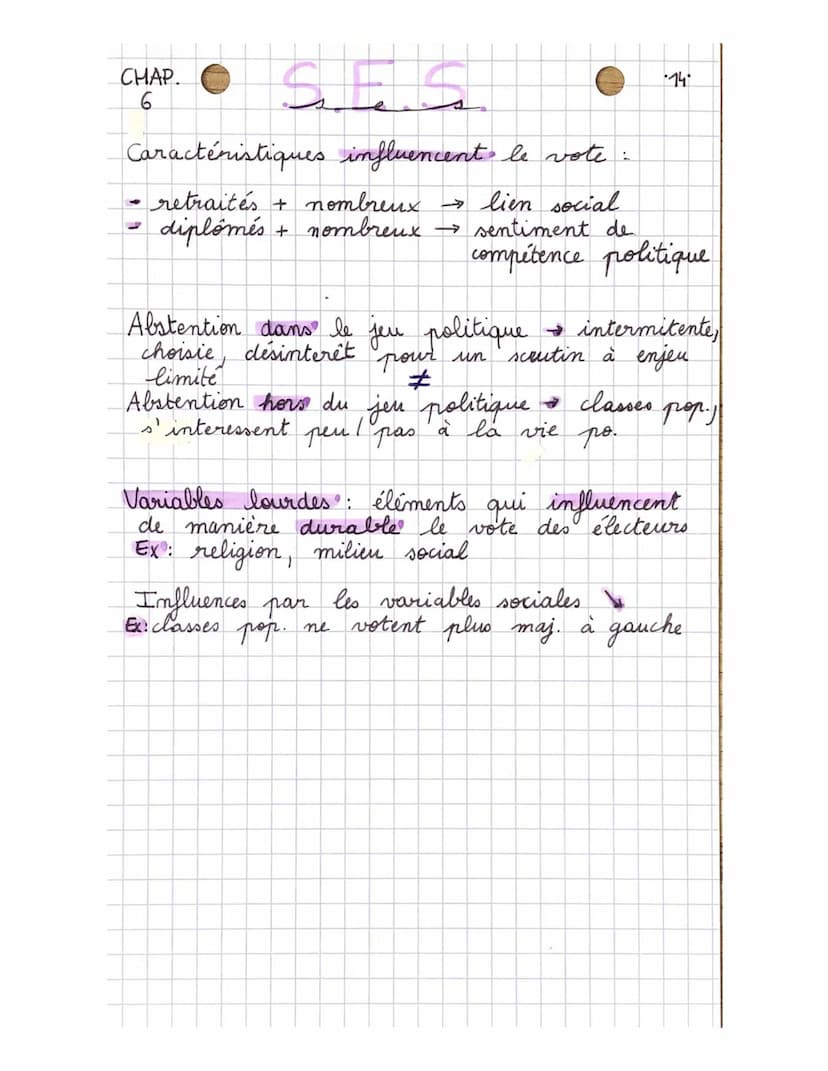 CHAP.
6
S.E.S.
s.e.s.
·14·
Caractéristiques influencent le vote :
- retraités + nombreux → lien social
- diplômés + nombreux → sentiment de
compétence politique
Abstention dans le jeu politique → intermitente,
choisie, désinterêt pour un scrutin à enjeu
limité
≠
Abstention hors du jeu politique → classes pop.,
s'interessent peu / pas à la vie po.
Variables lourdes : éléments qui influencent
de manière durable le vote des électeurs
Ex : religion, milieu social
Influences par les variables sociales ↘
Ex : classes pop. ne votent plus maj. à gauche